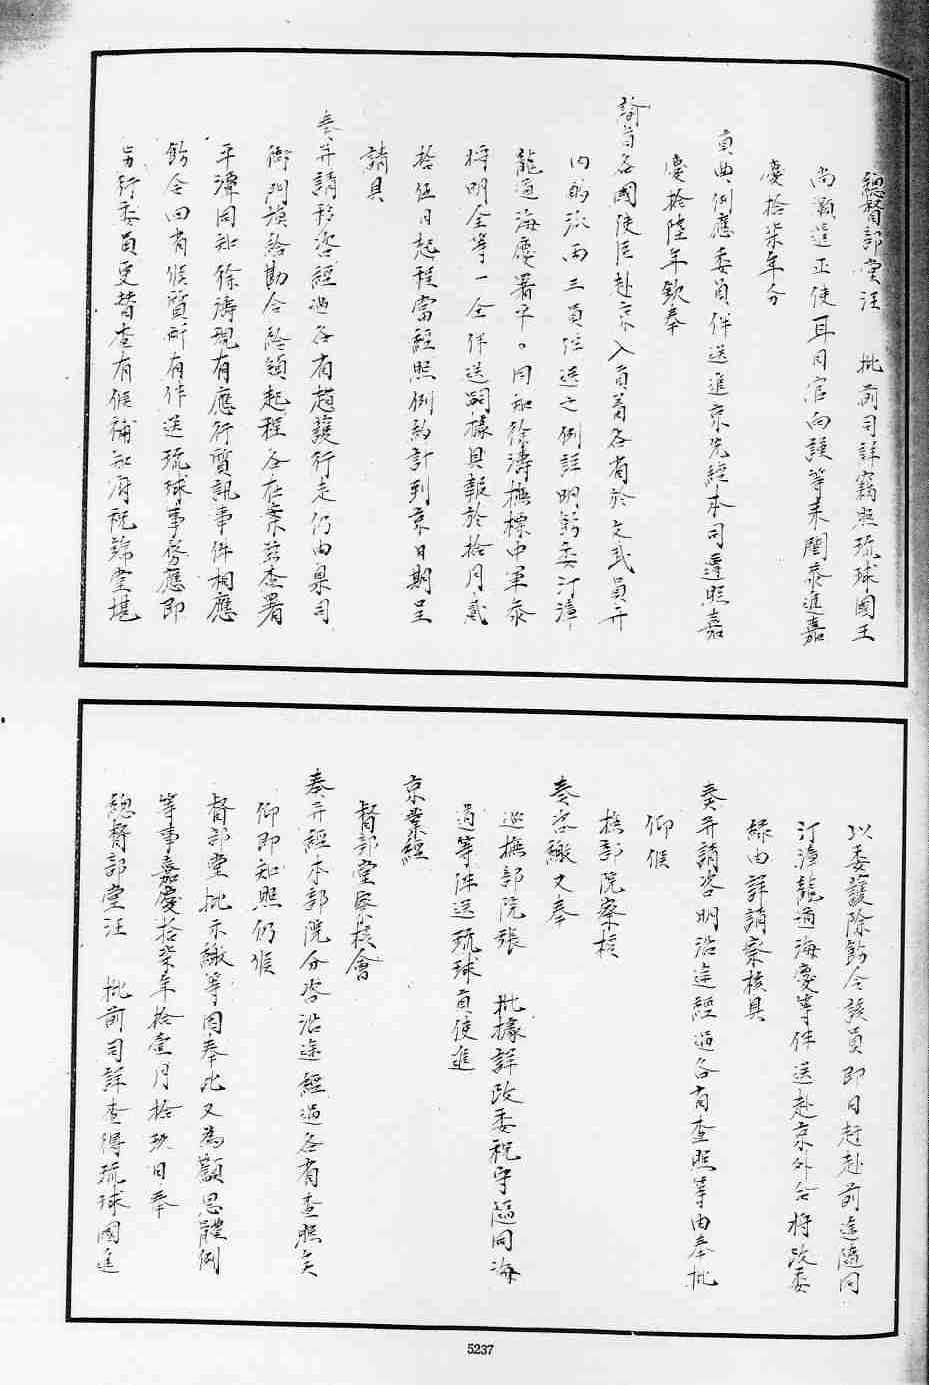 總督部堂汪　批前司詳竊照琉球國王
尚灝遣正使耳目官向謹等来閩恭進嘉
慶拾柒年分
貢典例應委員伴送進京先經本司遵照嘉
慶拾陸年欽奉
諭旨各國使臣赴京入貢着各省於文武員弁
内酌派両三員伴送之例註明飭委汀漳
龍道海慶署平。同知徐濤撫標中軍叅
将明全等一仝伴送嗣據具報於拾月貳
拾伍日起程當經照例約計到京日期呈
請具
奏并請移咨經過各省趲護行走仍由臬司
衙門填給勘合給領起程各在案茲查署
平潭同知徐濤現有應行質訊事件相應
飭令回省候質所有伴送琉球事務應即
另行委員更替查有候補知府祝堂堪
以委護除飭令該員即日赶赴前途隨同
汀漳龍道海慶等伴送赴京外合将改委
緣由詳請察核具
奏并請咨明沿途經過各省查照等由奉批
仰候
撫部院察核
奏咨繳又奉
巡撫部院張　批據詳改委祝守隨同海
道等伴送琉球貢使進
京業經
督部堂會
奏并經本部院分咨沿途經過各省查照矣
仰即知照仍候
督部堂批示繳等因奉此又為顴恩體例
等事嘉慶拾柒年拾壹月拾玖日奉
總督部堂汪　批前司詳查得琉球國進
5237